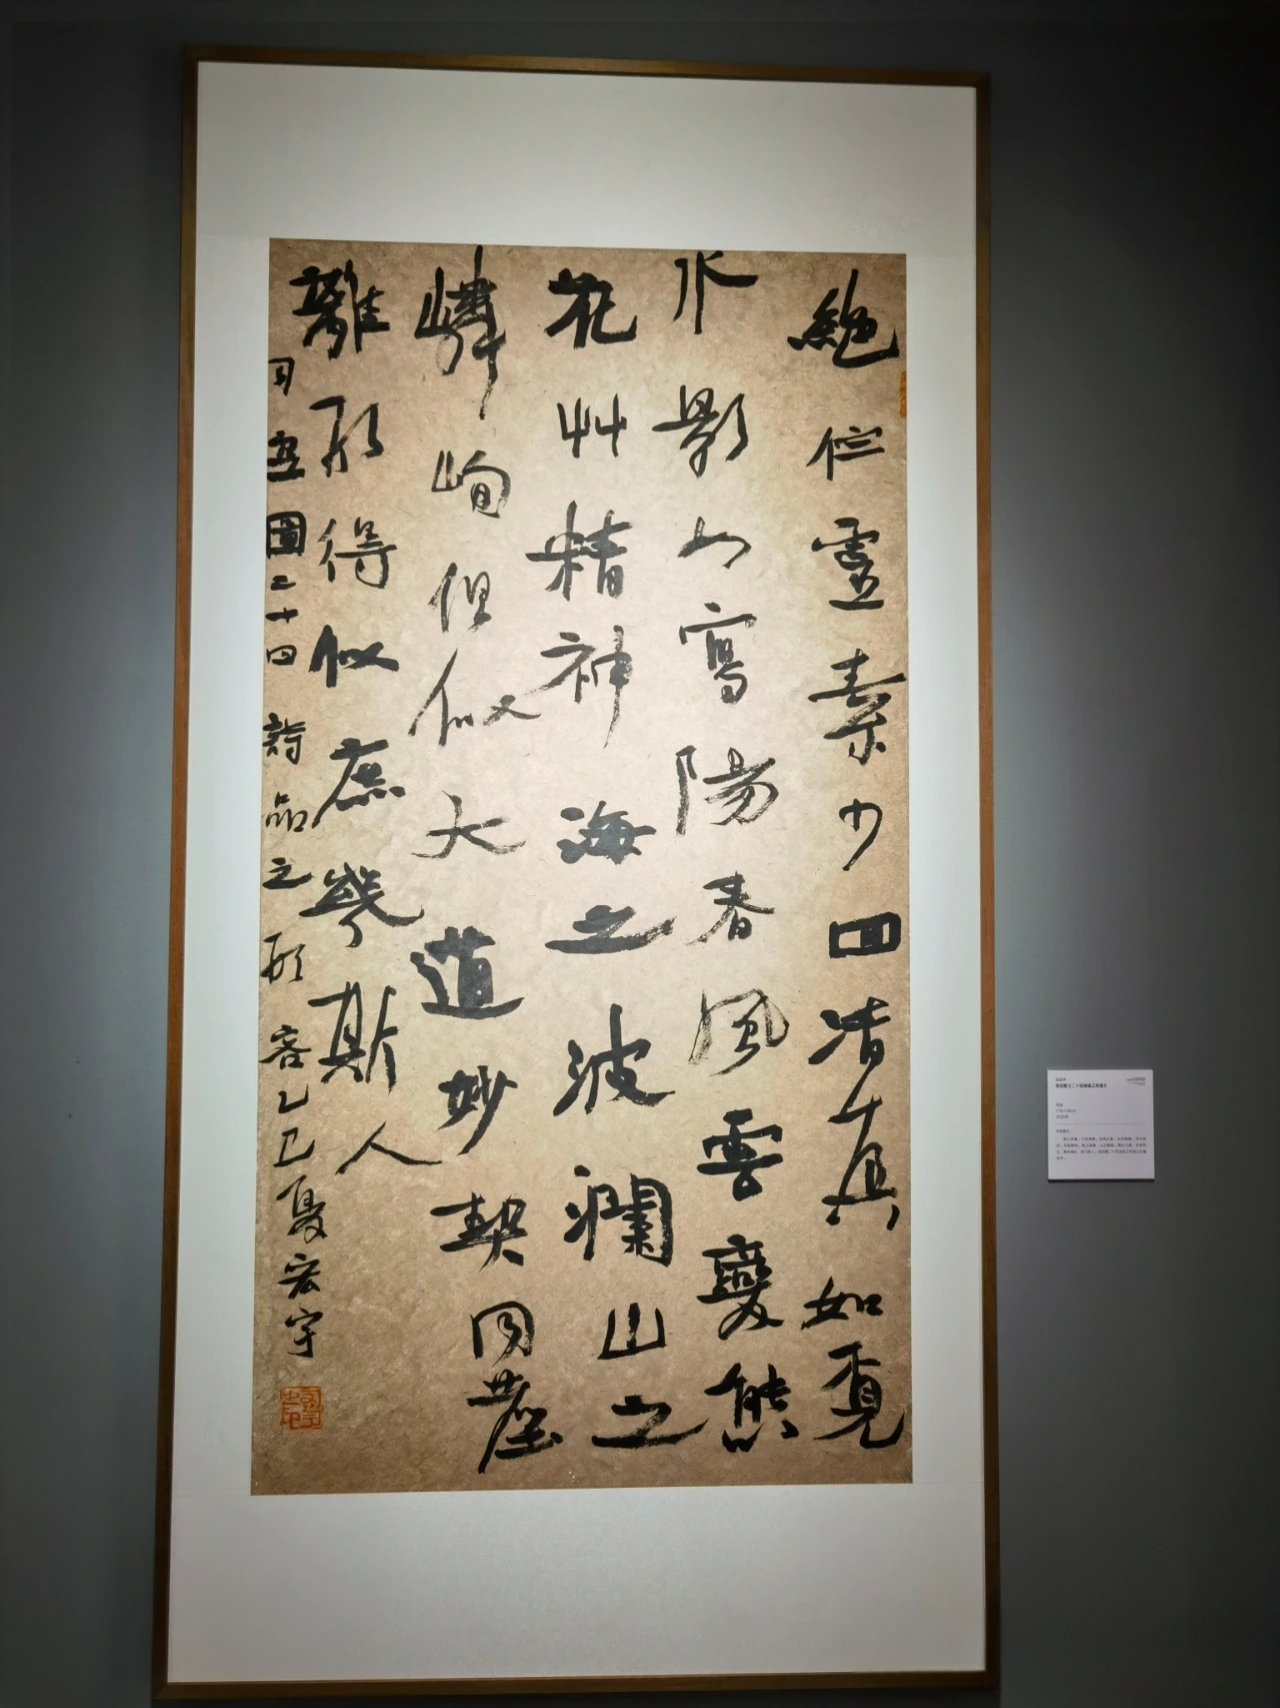 絕伫靈素少回清真如覓
水影如寫陽春風雲變態
花艸精神海之波瀾山之
嶙峋但似大道妙契同塵
離形得似庶幾斯人
司空圖二十四詩品之形容乙巳夏宏宇